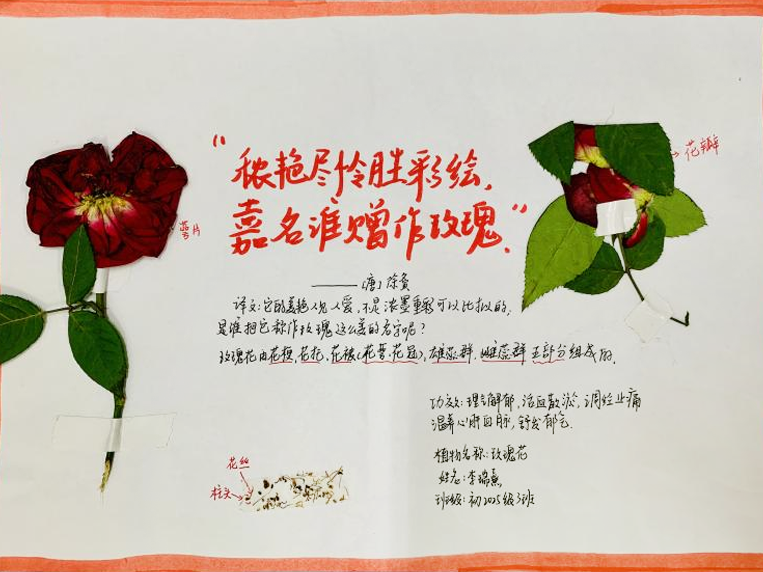 “秾艳尽怜胜彩绘，
嘉名谁赠作玫瑰。”
——（唐）徐夤
译文：它的美艳人见人爱，不是浓墨重彩可以比拟的，
是谁把它称作玫瑰这么美的名字呢？
玫瑰花由花梗，花托，花被（花萼，花冠），雄蕊群，雌蕊群五部分组成的。
萼片
花瓣
功效：理气解郁，活血散淤，调经止痛
温养心肝血脉，舒发郁气。
植物名称：玫瑰花
姓名：李瑞熹
班级：初2025级3班
花丝
柱头